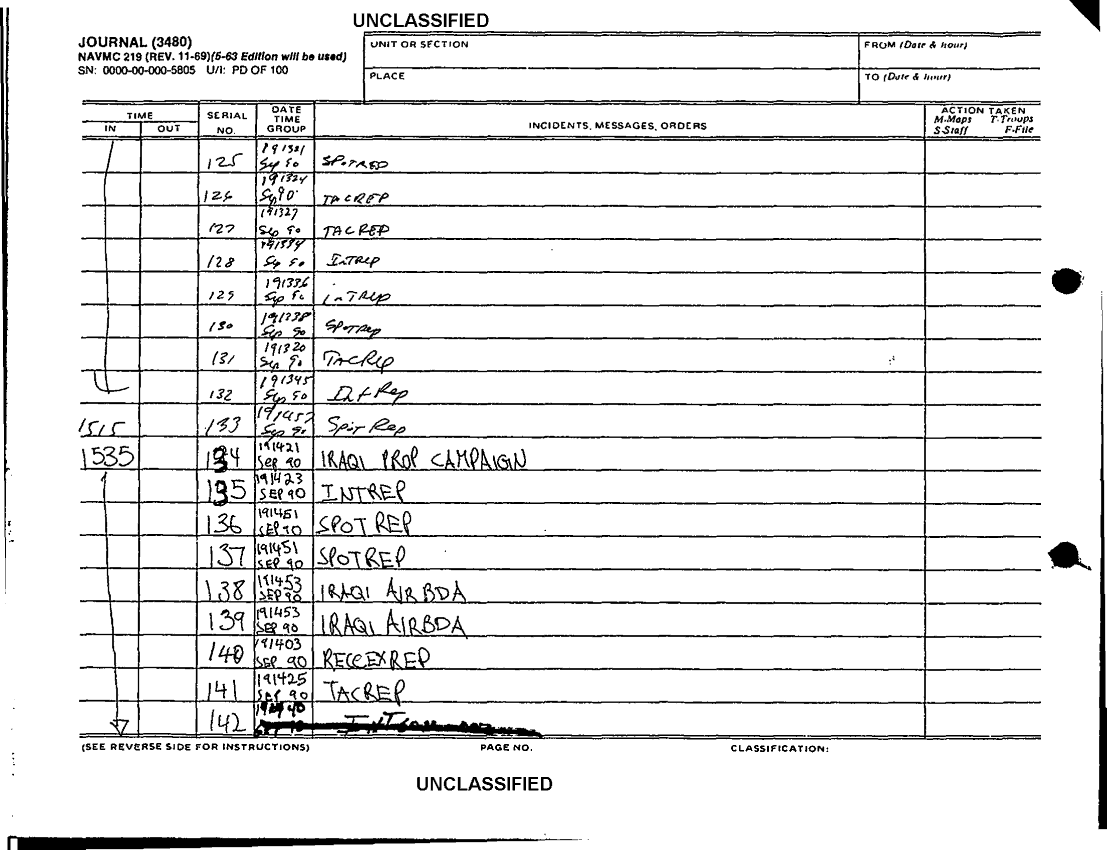 UNCLASSIFIED
JOURNAL (3480)
NAVMC 219 (REV. 11-69)(5-63 Edition will be used)
SN: 0000-00-000-5805 U/I: PD OF 100
UNIT OR SECTION
FROM (Date & hour)
PLACE
TO (Date & hour)
TIME
IN OUT
SERIAL NO.
DATE TIME GROUP
INCIDENTS, MESSAGES, ORDERS
ACTION TAKEN
M-Maps T-Troups
S-Staff F-File
125 191321 Sep 90 SPOTREP
126 191324 Sep 90 TACREP
127 191327 Sep 90 TACREP
128 Sep 90 INTREP
129 191336 Sep 90 INTREP
130 191338 Sep 90 SPOTREP
131 191320 Sep 90 TACREP
132 191345 Sep 90 Int Rep
1515 133 191457 Sep 90 Spot Rep
1535 134 191421 SEP 90 IRAQI PROP CAMPAIGN
135 191423 SEP 90 INTREP
136 191451 SEP 90 SPOTREP
137 191451 SEP 90 SPOTREP
138 191453 SEP 90 IRAQI AIR BDA
139 191453 SEP 90 IRAQI AIRBDA
140 191403 SEP 90 RECCEXREP
141 191425 SEP 90 TACREP
142
(SEE REVERSE SIDE FOR INSTRUCTIONS)
PAGE NO.
CLASSIFICATION:
UNCLASSIFIED